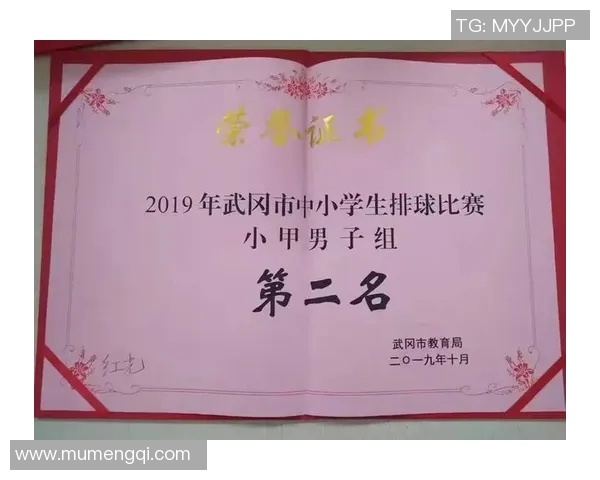 TG: MYYJJPP
荣誉证书
2019年武冈市中小学生排球比赛
小甲男子组
第二名
武冈市教育局
二〇一九年十月
红光
www.mumengqi.com